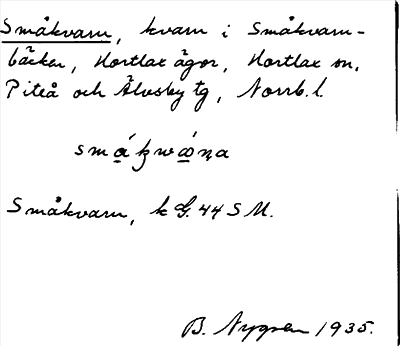 Småkvarn, kvarn i Småkvarn-
bäcken, Hortlax ägor, Hortlax sn,
Piteå och Älvsby tg, Norrb. l.
Småkvarn, k G. 44 S M.
B. Nygren 1935.